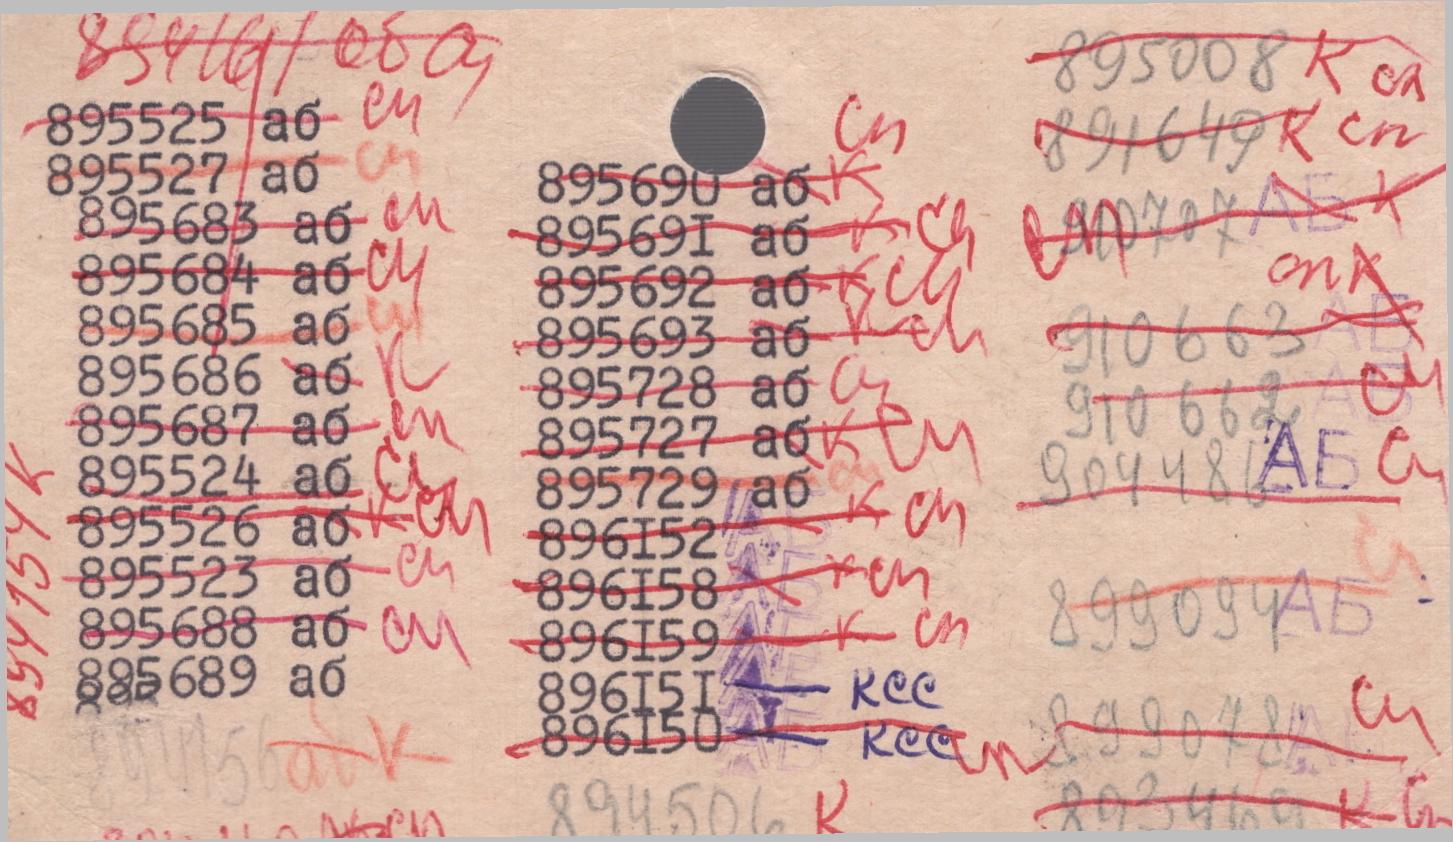 894161 аб сп
895525 аб сп
895527 аб сп
895683 аб сп
895684 аб сп
895685 аб сп
895686 аб К
895687 аб сп
895524 аб сп
895526 аб К сп
895523 аб сп
895688 аб сп
895689 аб
894156 аб К
894154 К
895690 аб К сп
89569I аб К сп
895692 аб К сп
895693 аб К сп
895728 аб сп
895727 аб К сп
895729 аб сп
896I52 АБ К сп
896I58 АБ К сп
896I59 АБ К сп
896I5I АБ КСС
896I50 АБ КСС сп
894506 К
895008 К сп
891649 К сп
910707 АБ К сп
сп К
910663 АБ
910662 АБ сп
904486 АБ сп
899094 АБ сп
899078 АБ сп
893469 К сп